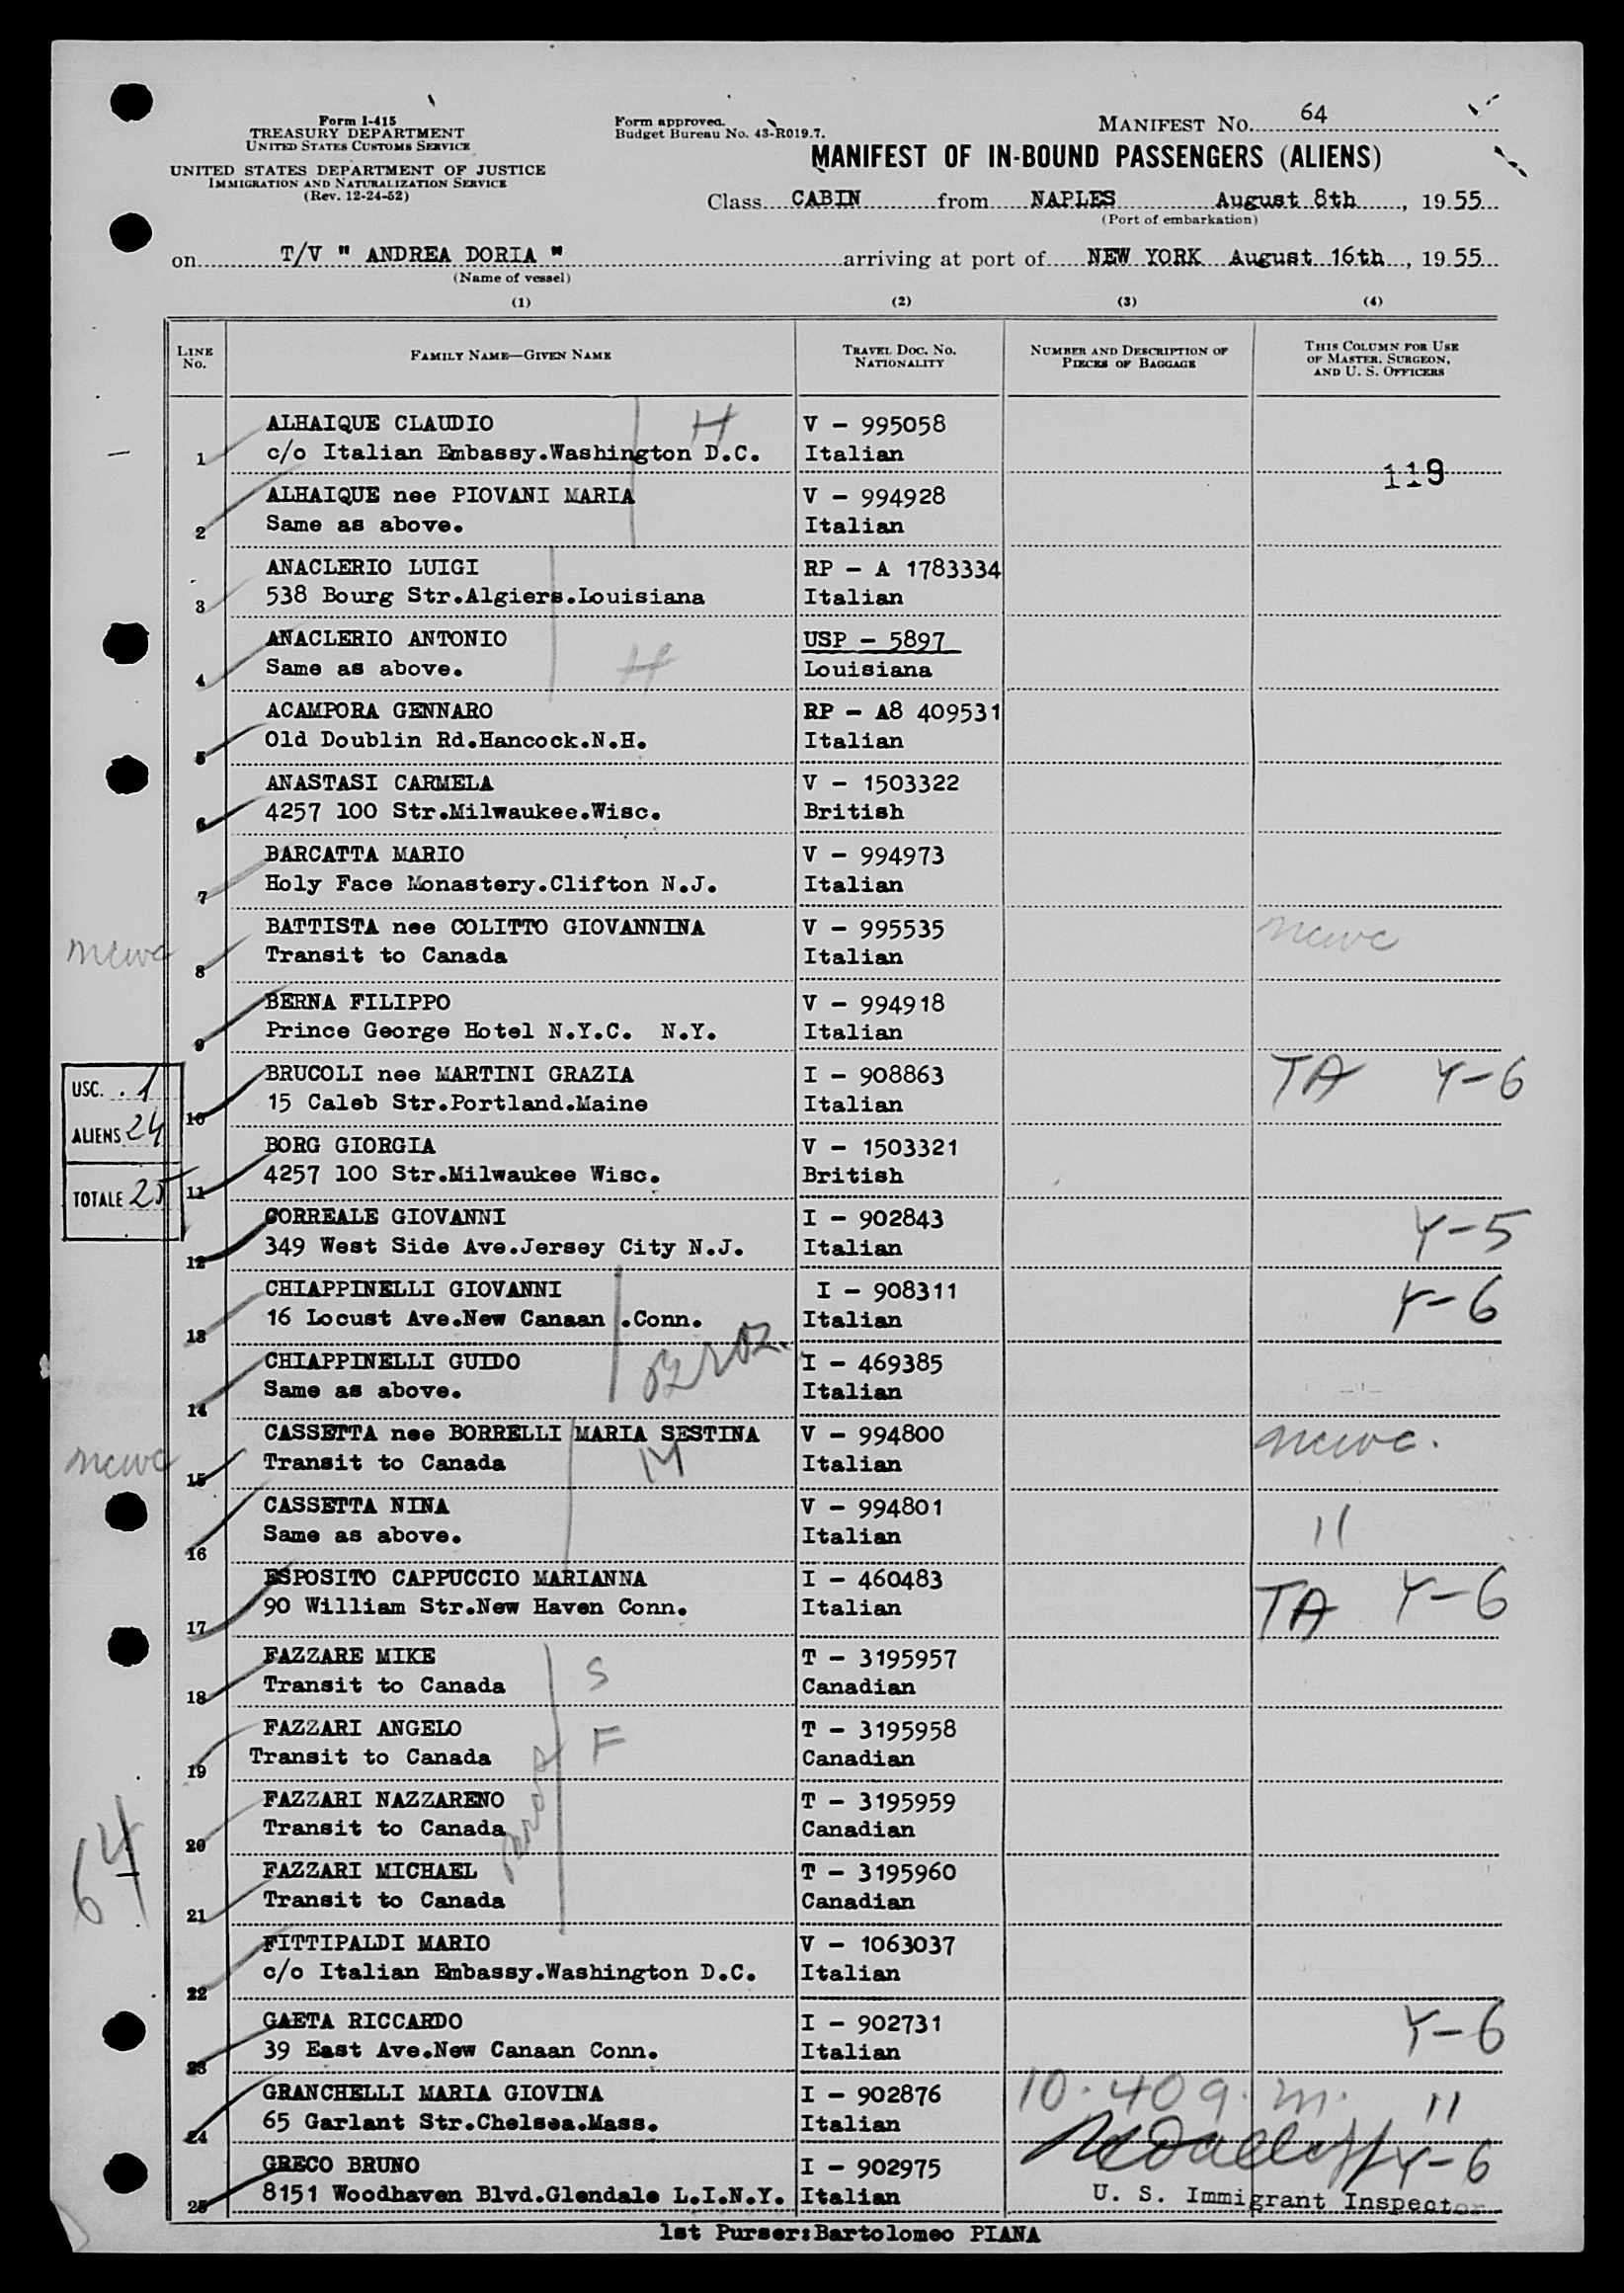 Form I-415
TREASURY DEPARTMENT
UNITED STATES CUSTOMS SERVICE
UNITED STATES DEPARTMENT OF JUSTICE
IMMIGRATION AND NATURALIZATION SERVICE
(Rev. 12-24-52)
Form approved.
Budget Bureau No. 43-R019.7.
MANIFEST NO. 64
MANIFEST OF IN-BOUND PASSENGERS (ALIENS)
Class CABIN from NAPLES August 8th, 1955
(Port of embarkation)
on T/V " ANDREA DORIA " arriving at port of NEW YORK August 16th, 1955
(Name of vessel)
(1) (2) (3) (4)
LINE No. FAMILY NAME—GIVEN NAME TRAVEL DOC. NO. NATIONALITY NUMBER AND DESCRIPTION OF PIECES OF BAGGAGE THIS COLUMN FOR USE OF MASTER, SURGEON, AND U. S. OFFICERS
ALHAIQUE CLAUDIO H V - 995058
1 c/o Italian Embassy.Washington D.C. Italian
119
ALHAIQUE nee PIOVANI MARIA V - 994928
2 Same as above. Italian
ANACLERIO LUIGI RP - A 1783334
3 538 Bourg Str.Algiers.Louisiana Italian
ANACLERIO ANTONIO USP - 5897
4 Same as above. H Louisiana
ACAMPORA GENNARO RP - A8 409531
5 Old Doublin Rd.Hancock.N.H. Italian
ANASTASI CARMELA V - 1503322
6 4257 100 Str.Milwaukee.Wisc. British
BARCATTA MARIO V - 994973
7 Holy Face Monastery.Clifton N.J. Italian
BATTISTA nee COLITTO GIOVANNINA V - 995535 ncwc
ncwc 8 Transit to Canada Italian
BERNA FILIPPO V - 994918
9 Prince George Hotel N.Y.C. N.Y. Italian
BRUCOLI nee MARTINI GRAZIA I - 908863 TA Y-6
10 15 Caleb Str.Portland.Maine Italian
USC. 1
ALIENS 24
TOTALE 25
BORG GIORGIA V - 1503321
11 4257 100 Str.Milwaukee Wisc. British
CORREALE GIOVANNI I - 902843 Y-5
12 349 West Side Ave.Jersey City N.J. Italian
CHIAPPINELLI GIOVANNI I - 908311 Y-6
13 16 Locust Ave.New Canaan .Conn. Italian
Bros.
CHIAPPINELLI GUIDO I - 469385
14 Same as above. Italian
CASSETTA nee BORRELLI MARIA SESTINA V - 994800 ncwc.
ncwc 15 Transit to Canada M Italian
CASSETTA NINA V - 994801 "
16 Same as above. Italian
ESPOSITO CAPPUCCIO MARIANNA I - 460483 TA Y-6
17 90 William Str.New Haven Conn. Italian
FAZZARE MIKE S T - 3195957
18 Transit to Canada Canadian
FAZZARI ANGELO F T - 3195958
19 Transit to Canada Canadian
Bros
FAZZARI NAZZARENO T - 3195959
20 Transit to Canada Canadian
64
FAZZARI MICHAEL T - 3195960
21 Transit to Canada Canadian
FITTIPALDI MARIO V - 1063037
22 c/o Italian Embassy.Washington D.C. Italian
GAETA RICCARDO I - 902731 Y-6
23 39 East Ave.New Canaan Conn. Italian
GRANCHELLI MARIA GIOVINA I - 902876 10.40 a.m. "
24 65 Garlant Str.Chelsea.Mass. Italian
GRECO BRUNO I - 902975 Y-6
25 8151 Woodhaven Blvd.Glendale L.I.N.Y. Italian U. S. Immigrant Inspector
1st Purser:Bartolomeo PIANA